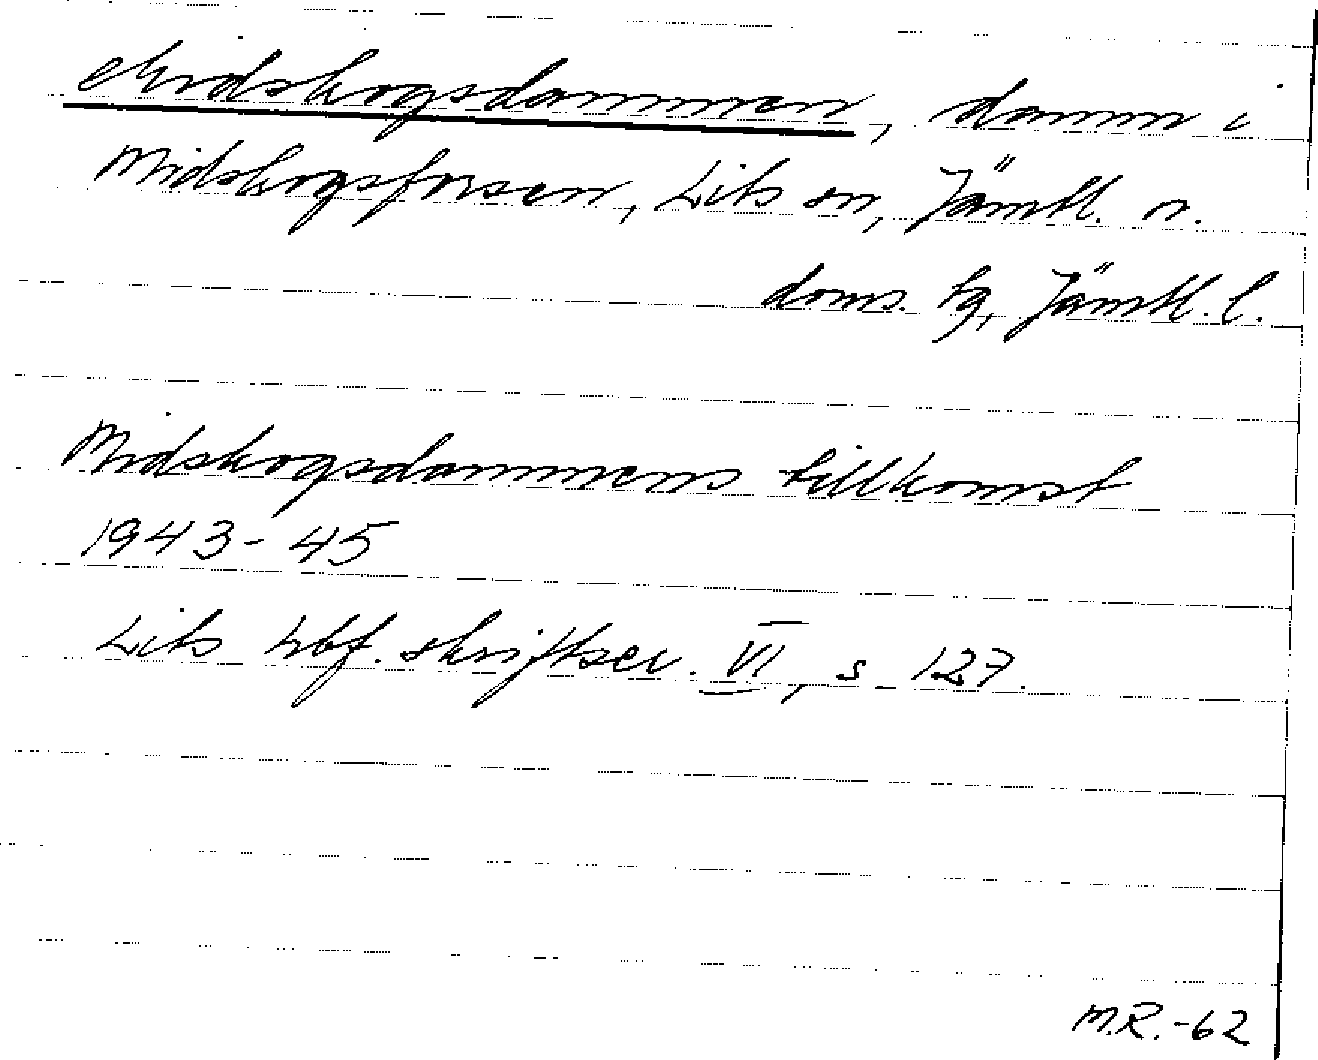 Midskogsdammen, damm i
Midskogsforsen, Lits sn, Jämtl. n.
doms. tg, Jämtl. l.
Midskogsdammens tillkomst
1943-45
Lits hbf. skriftser. VI, s 127.
M.R.-62